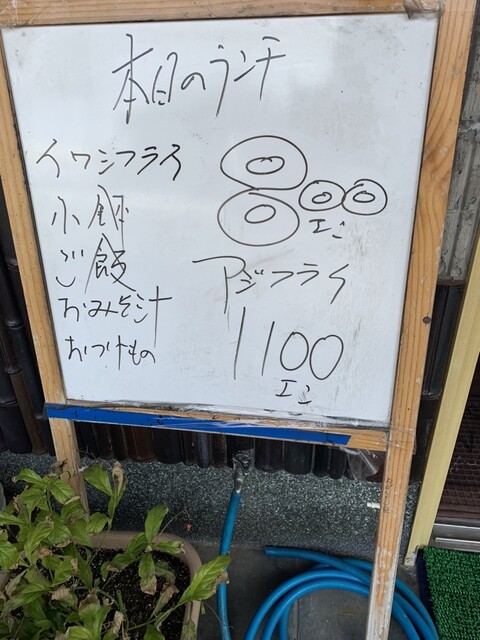 本日のランチ
イワシフライ
小鉢
ご飯
おみそ汁
おつけもの
800
エン
アジフライ
1100
エン